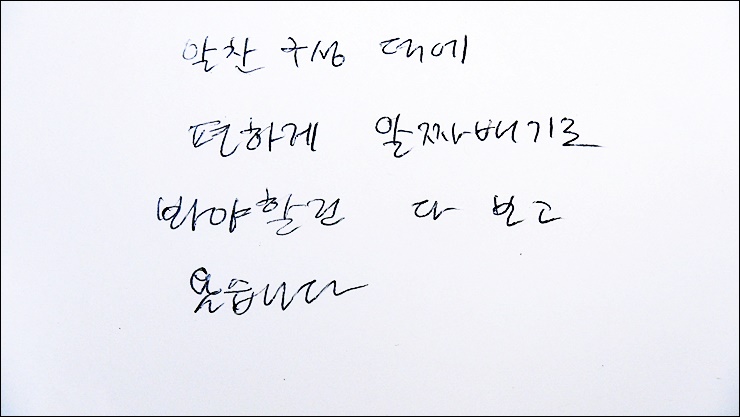 알찬 구성 덕에
편하게 알짜배기로
봐야할건 다 보고
왔습니다